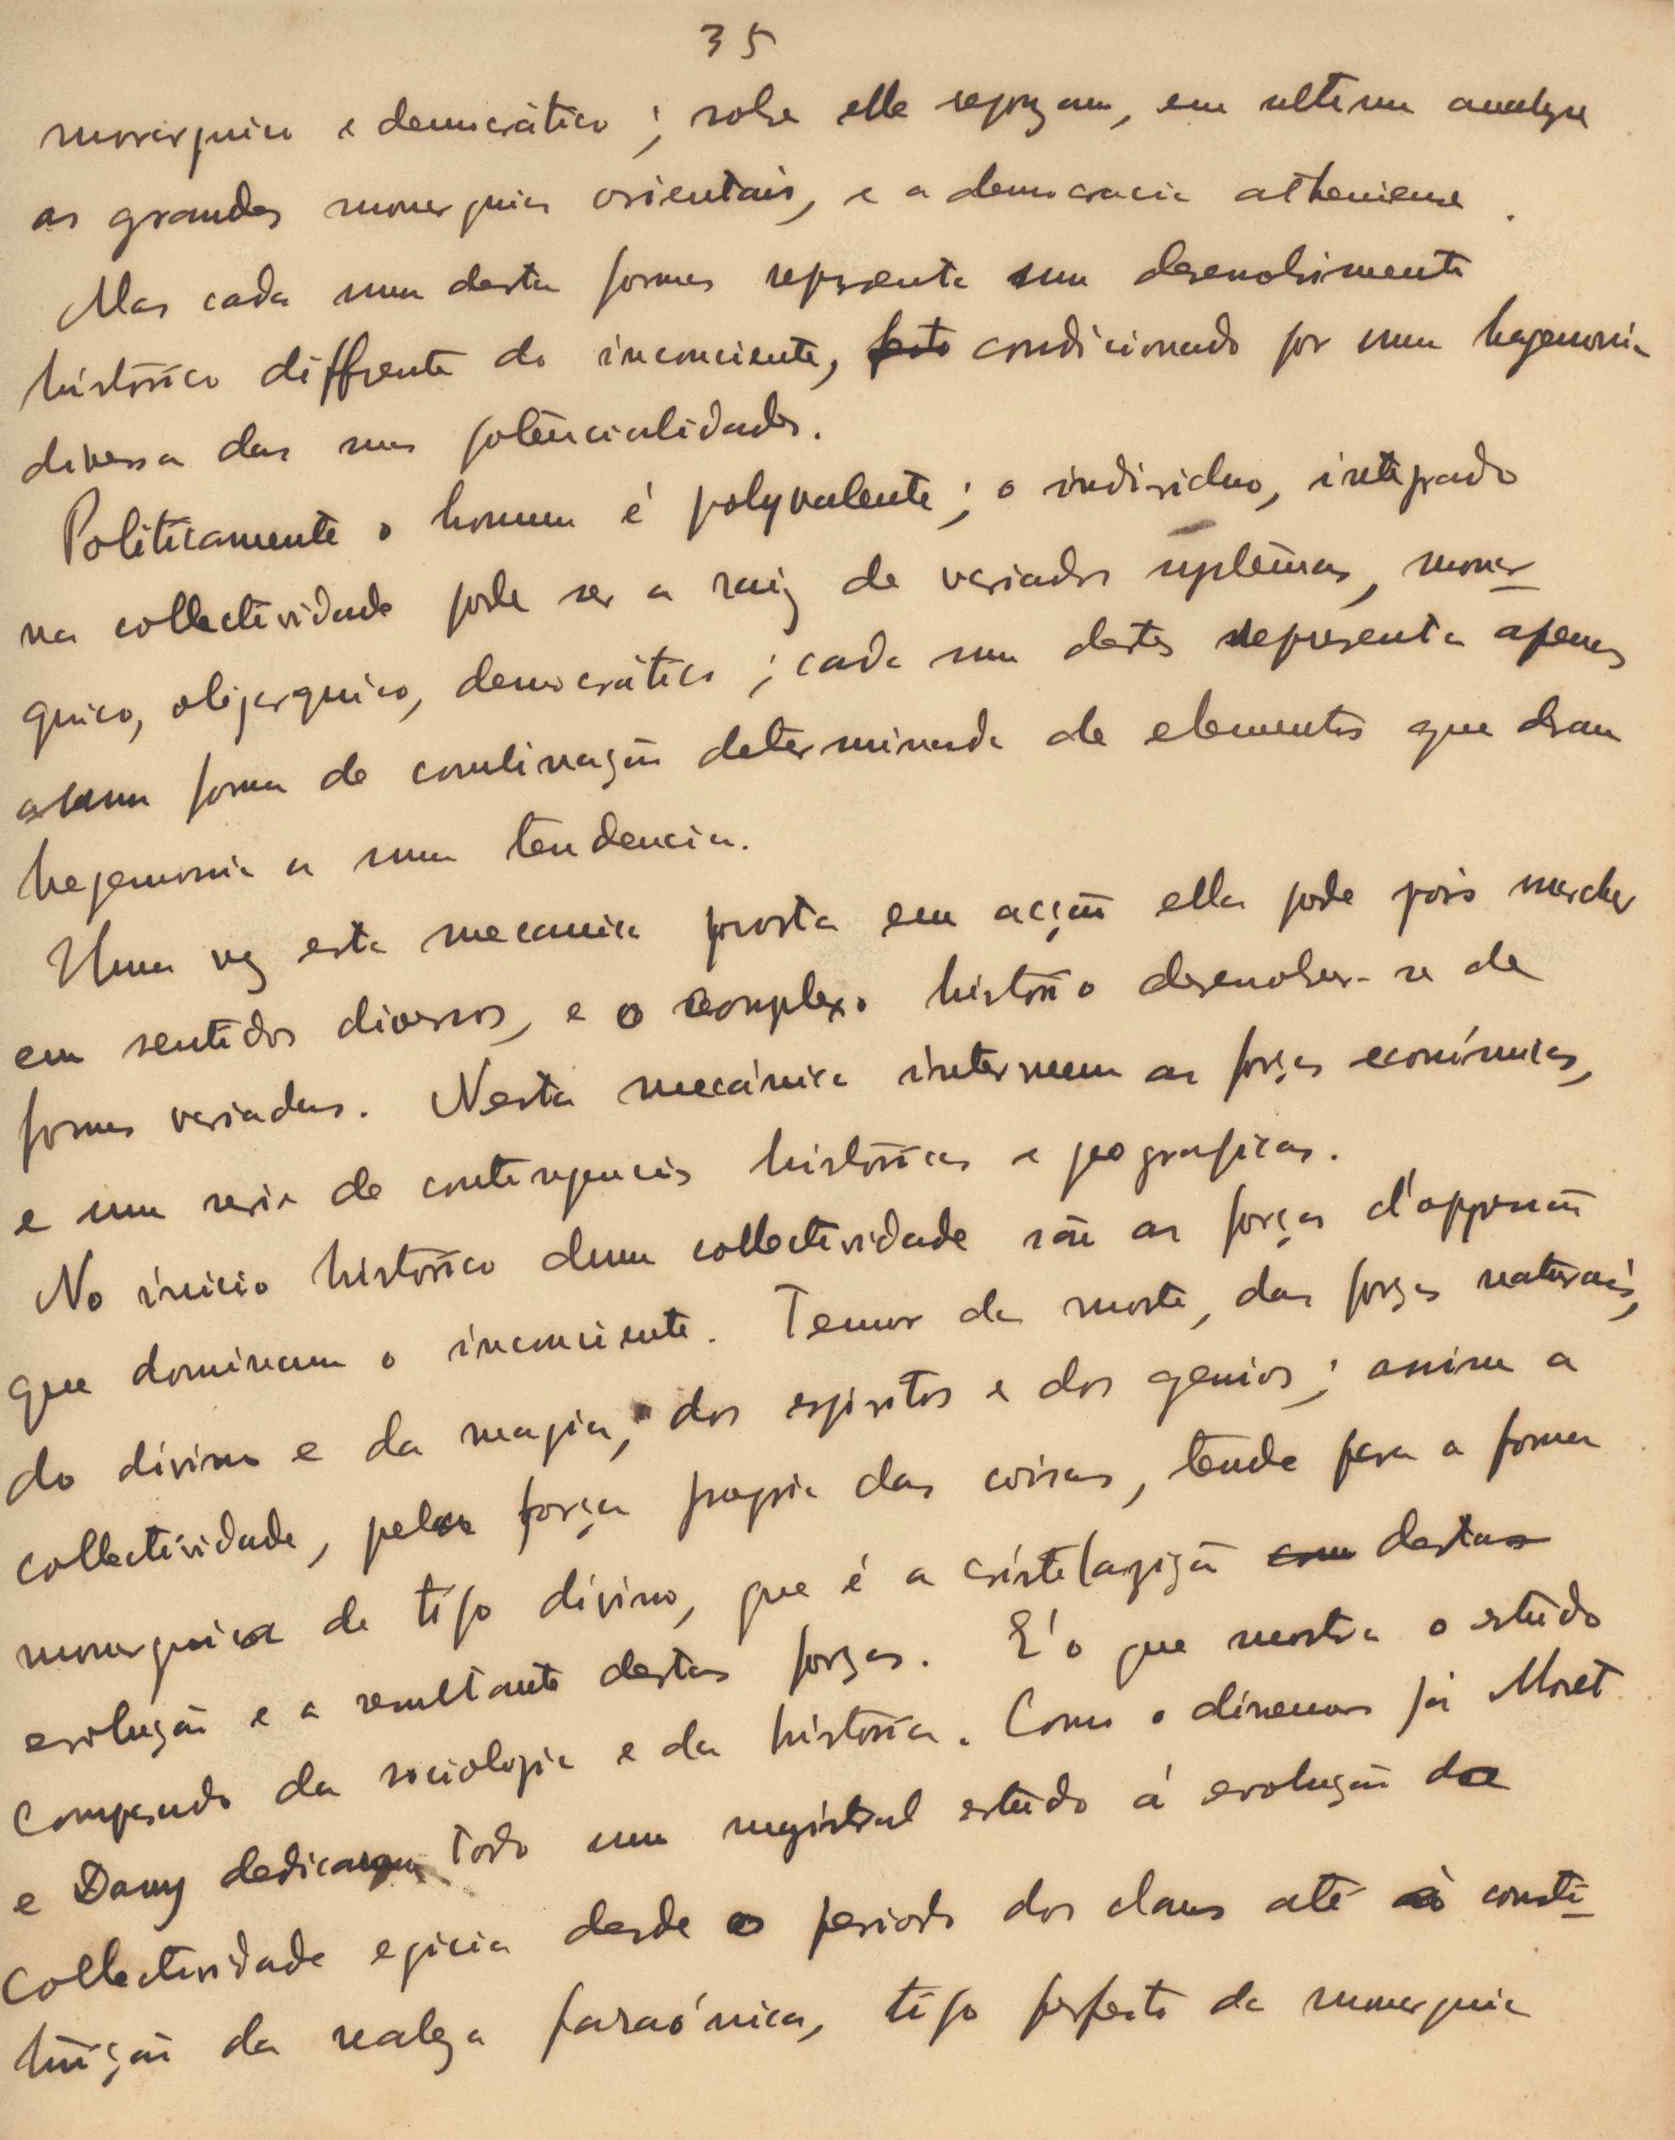 35
monarquico e democrático; sobre elle repozam, em ultima analyse
as grandes monarquias orientais, e a democracia atheniense.
Mas cada uma destas formas represente um desenvolvimento
histórico diffrente do inconciente, condicionado por uma hegemonia
diversa das suas potêncialidades.
Politicamente o homem é polyvalente; o individuo, integrado
na collectividade pode ser a raiz de variados systemas, monar-
quico, oligarquico, democrático; cada um destes representa apenas
uma forma de combinação determinada de elementos que deram
hegemonia a uma tendencia.
Uma vez esta mecanica posta em acção ella pode pois marchar
em sentidos diversos, e o complexo histórico desenvolver-se de
formas variadas. Nesta mecánica interveem as forças económicas,
e uma serie de contingencias históricas e geograficas.
No início histórico duma collectividade são as forças d'oppressão
que dominam o inconciente. Temor da morte, das forças naturais,
do divino e da magia, dos espiritos e dos genios; assim a
collectividade, pela força propria das coisas, tende para a forma
monarquica de tipo divino, que é a cristalização desta
evolução e a resultante destas forças. E' o que mostra o estudo
comparado da sociologia e da história. Como o dissemos já Moret
e Davy dedicaram todo um magistral estudo á evolução da
collectividade egicia desde o periodo dos clans até à consti-
tuição da realeza faraónica, tipo perfeito da monarquia